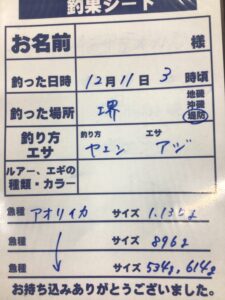 釣果シート
お名前 様
釣った日時 12月11日 3時頃
釣った場所 堺 地磯 沖磯 堤防
釣り方 エサ 釣り方 ヤエン エサ アジ
ルアー、エギの種類・カラー
魚種 アオリイカ サイズ 1.135g
魚種 ↓ サイズ 896g
魚種 サイズ 534g, 614g
お持ち込みありがとうございました。